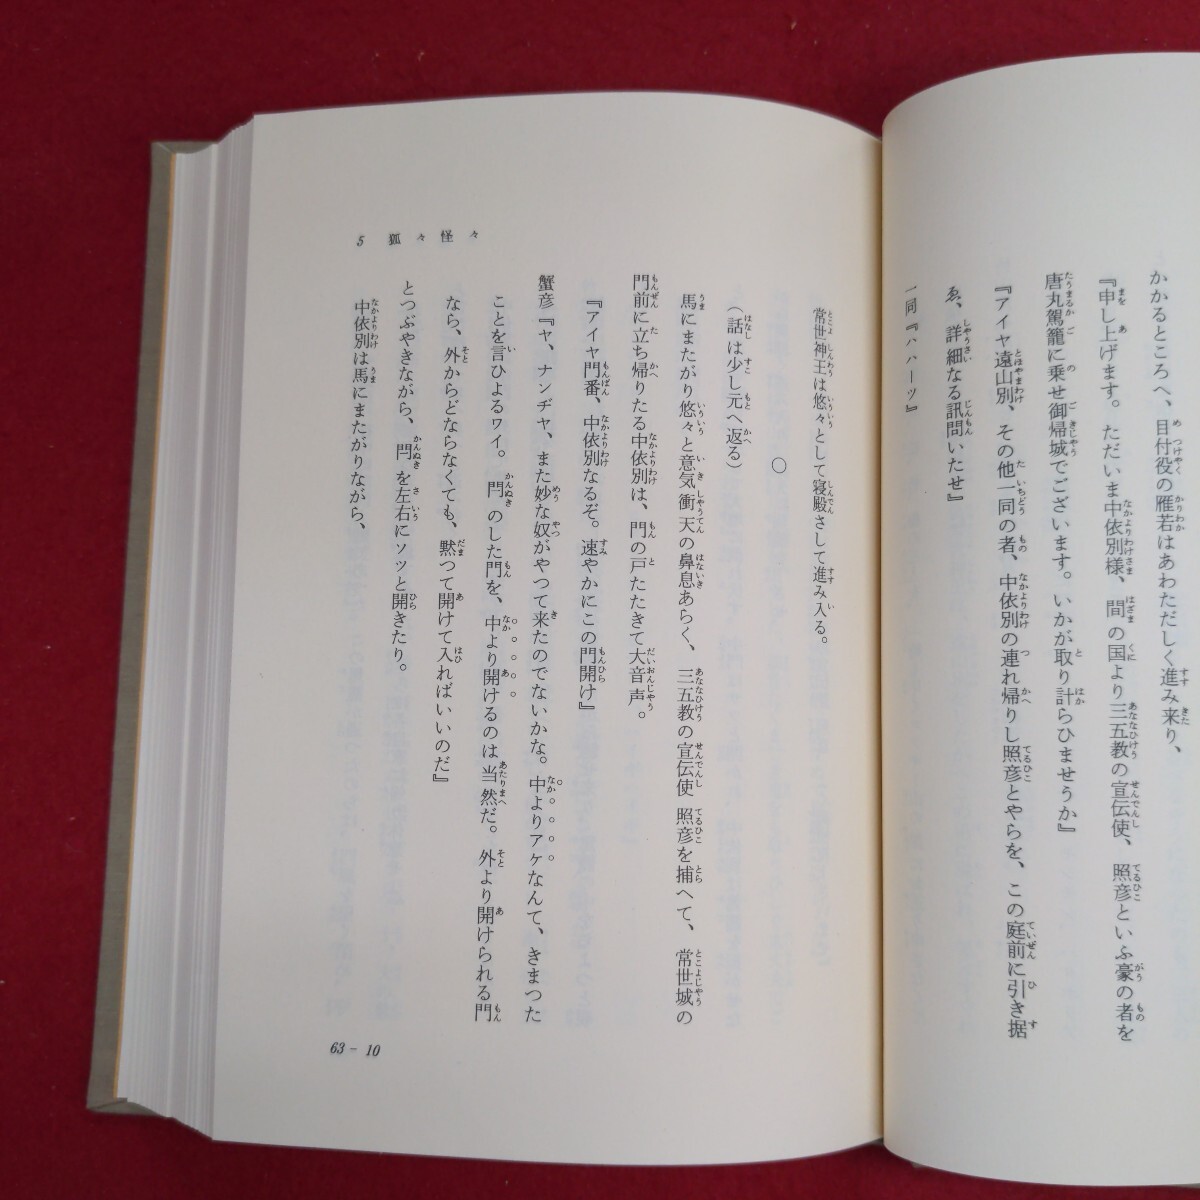 かかるところへ、目付役の雁若はあわただしく進み来り、
『申し上げます。ただいま中依別様、間の国より三五教の宣伝使、照彦といふ豪の者を
唐丸駕籠に乗せ御帰城でございます。いかが取り計らひませうか』
『アイヤ遠山別、その他一同の者、中依別の連れ帰りし照彦とやらを、この庭前に引き据
ゑ、詳細なる訊問いたせ』
一同『ハハーツ』
常世神王は悠々として寝殿さして進み入る。
○
(話は少し元へ返る)
馬にまたがり悠々と意気衝天の鼻息あらく、三五教の宣伝使照彦を捕へて、常世城の
門前に立ち帰りたる中依別は、門の戸たたきて大音声。
『アイヤ門番、中依別なるぞ。速やかにこの門開け』
蟹彦『ヤ、ナンヂヤ、また妙な奴がやつて来たのでないかな。中よりアケなんて、きまつた
ことを言ひよるワイ。閂のした門を、中より開けるのは当然だ。外より開けられる門
なら、外からどならなくても、黙つて開けて入ればいいのだ』
とつぶやきながら、閂を左右にソツと開きたり。
中依別は馬にまたがりながら、
5 狐々怪々
63－10